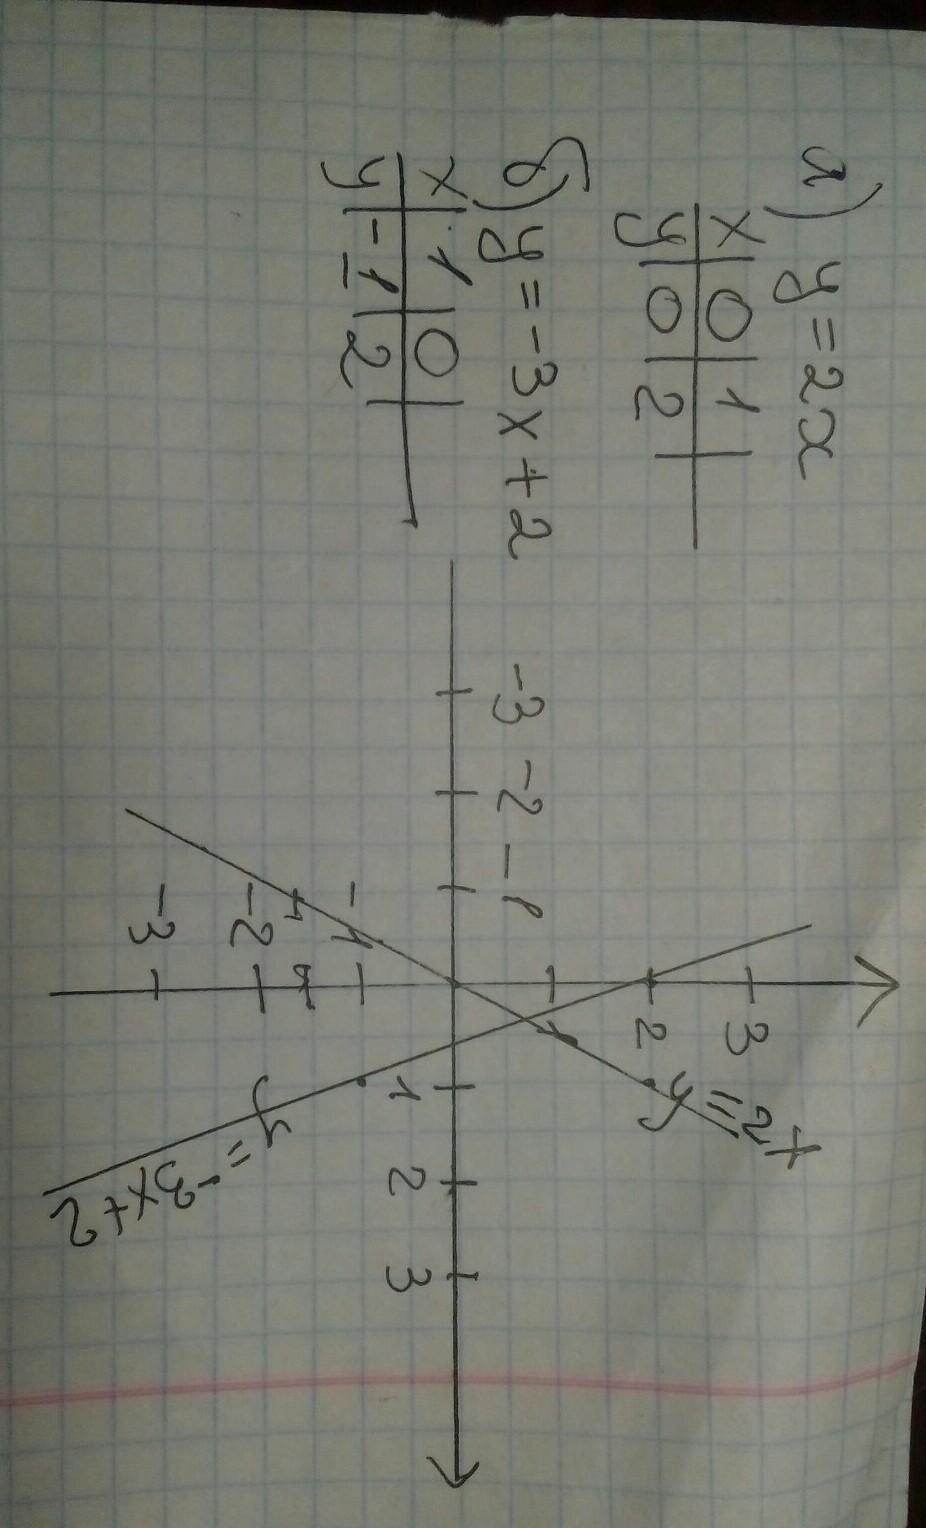 а) y = 2x
x | 0 | 1
y | 0 | 2
б) y = -3x + 2
x | 1 | 0
y | -1 | 2
3
2
1
-3 -2 -1
1 2 3
-1
-2
-3
y = 2x
y = -3x+2